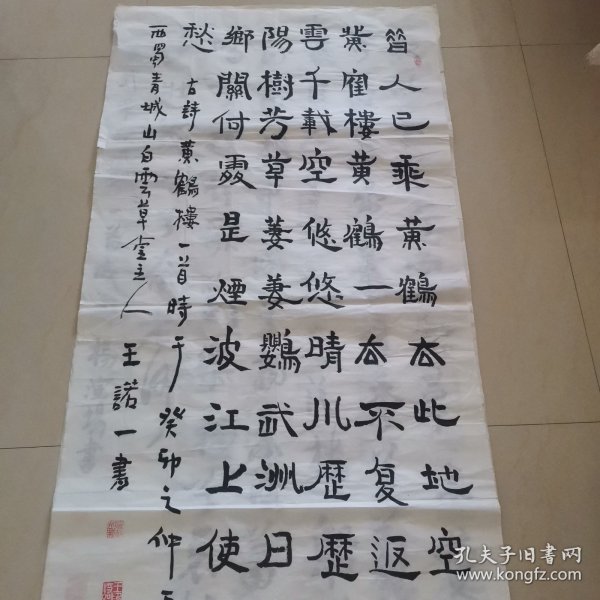 昔人已乘黃鶴去此地空
黃隺樓黃鶴一去不復返
雲千載空悠悠晴川歷歷
陽樹芳草萋萋鸚武洲日
鄉關何處是煙波江上使
愁
古詩黃鶴樓一首時于癸卯之仲
西蜀青城山白雲草堂主人王諾一書
孔夫子旧书网
www.kongfz.com